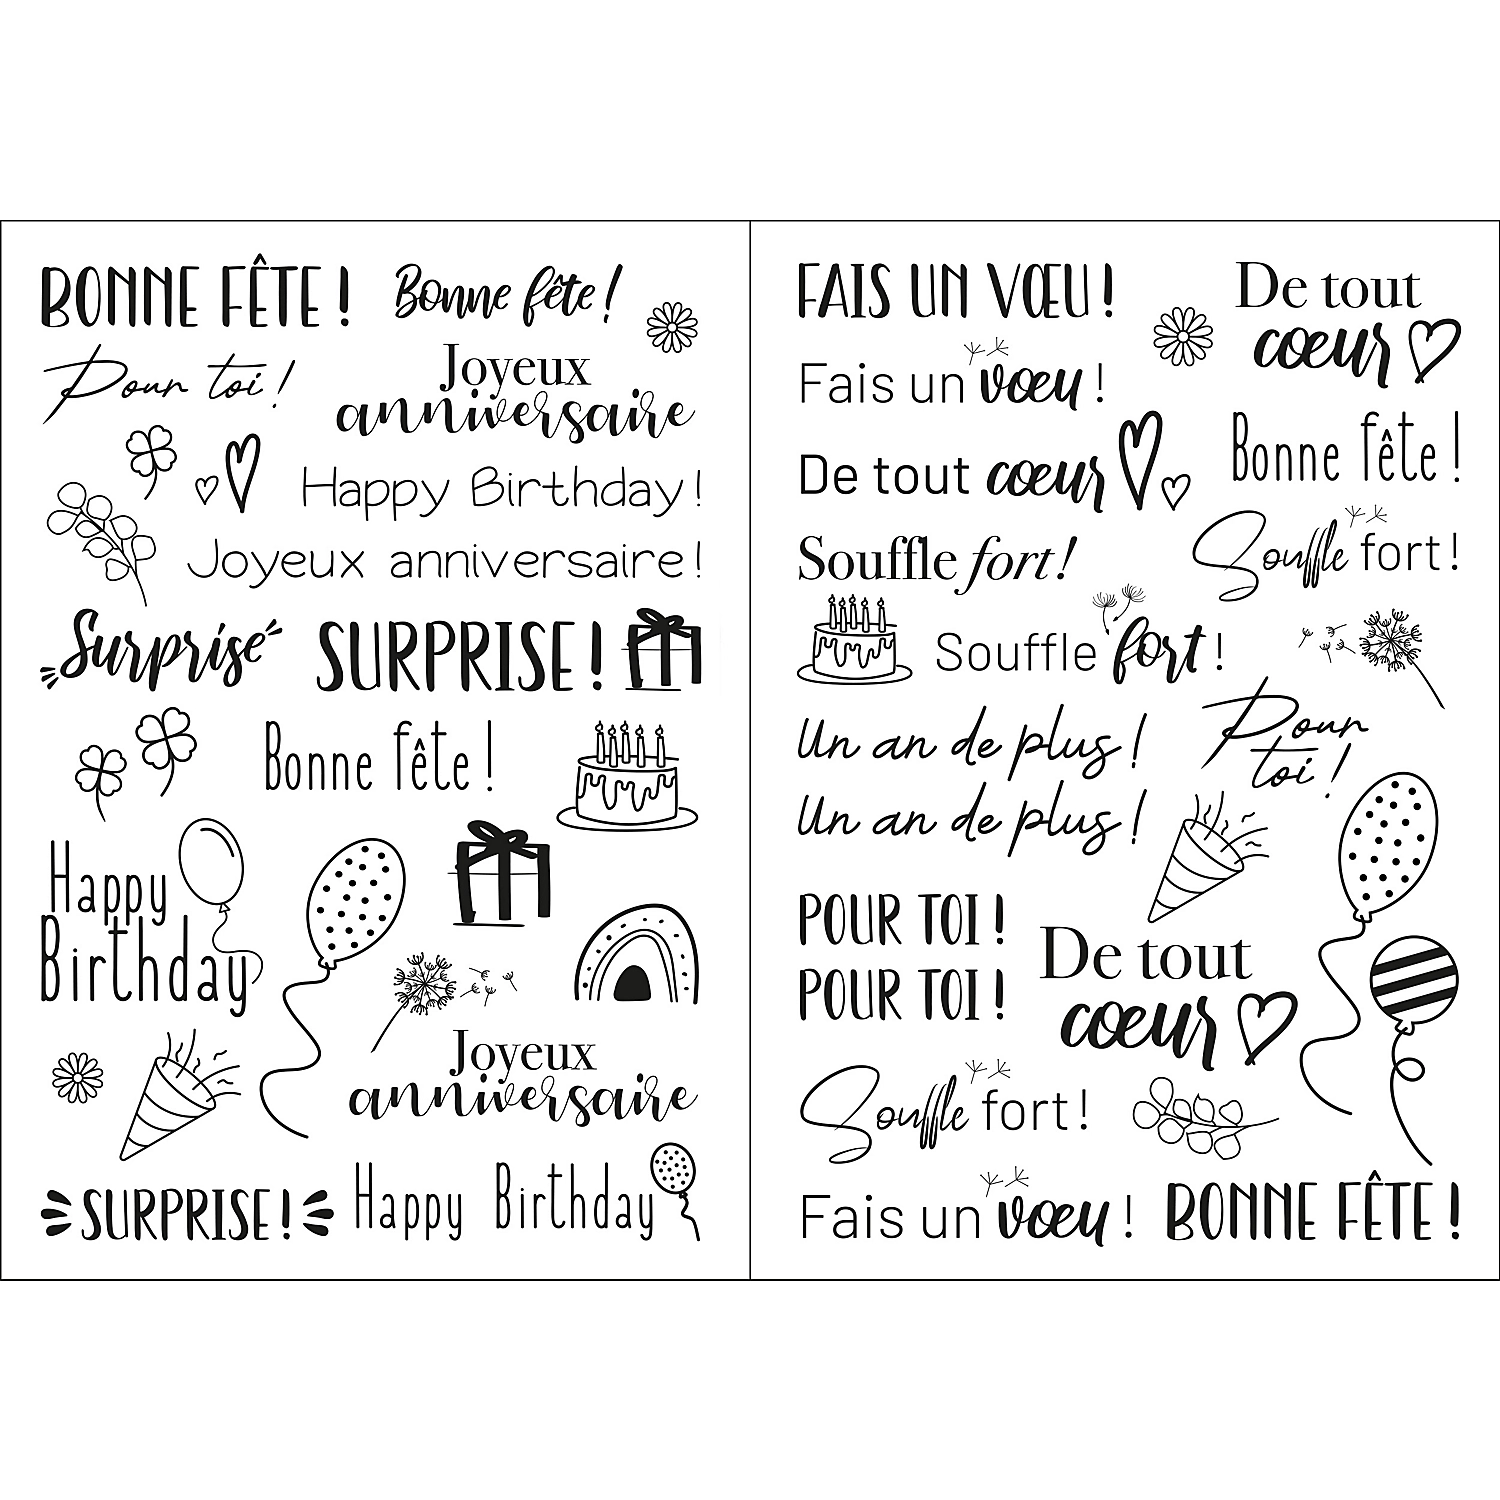 BONNE FÊTE !
Bonne fête !
Pour toi !
Joyeux
anniversaire
Happy Birthday !
Joyeux anniversaire !
Surprise
SURPRISE !
Bonne fête !
Happy
Birthday
Joyeux
anniversaire
SURPRISE !
Happy Birthday
FAIS UN VŒU !
De tout
cœur
Fais un vœu !
De tout cœur
Bonne fête !
Souffle fort !
Souffle fort !
Souffle fort !
Un an de plus !
Pour
toi !
Un an de plus !
POUR TOI !
POUR TOI !
De tout
cœur
Souffle fort !
Fais un vœu !
BONNE FÊTE !